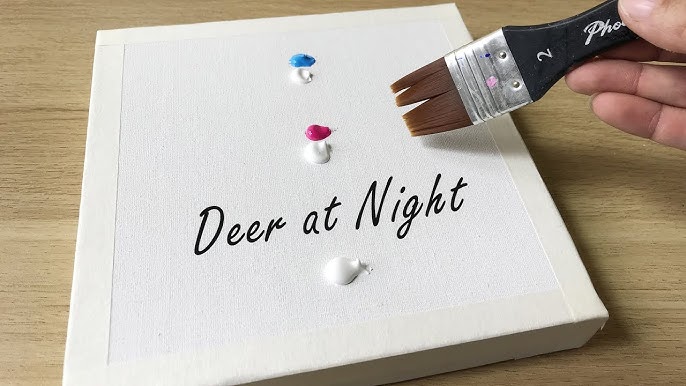 2
Deer at Night